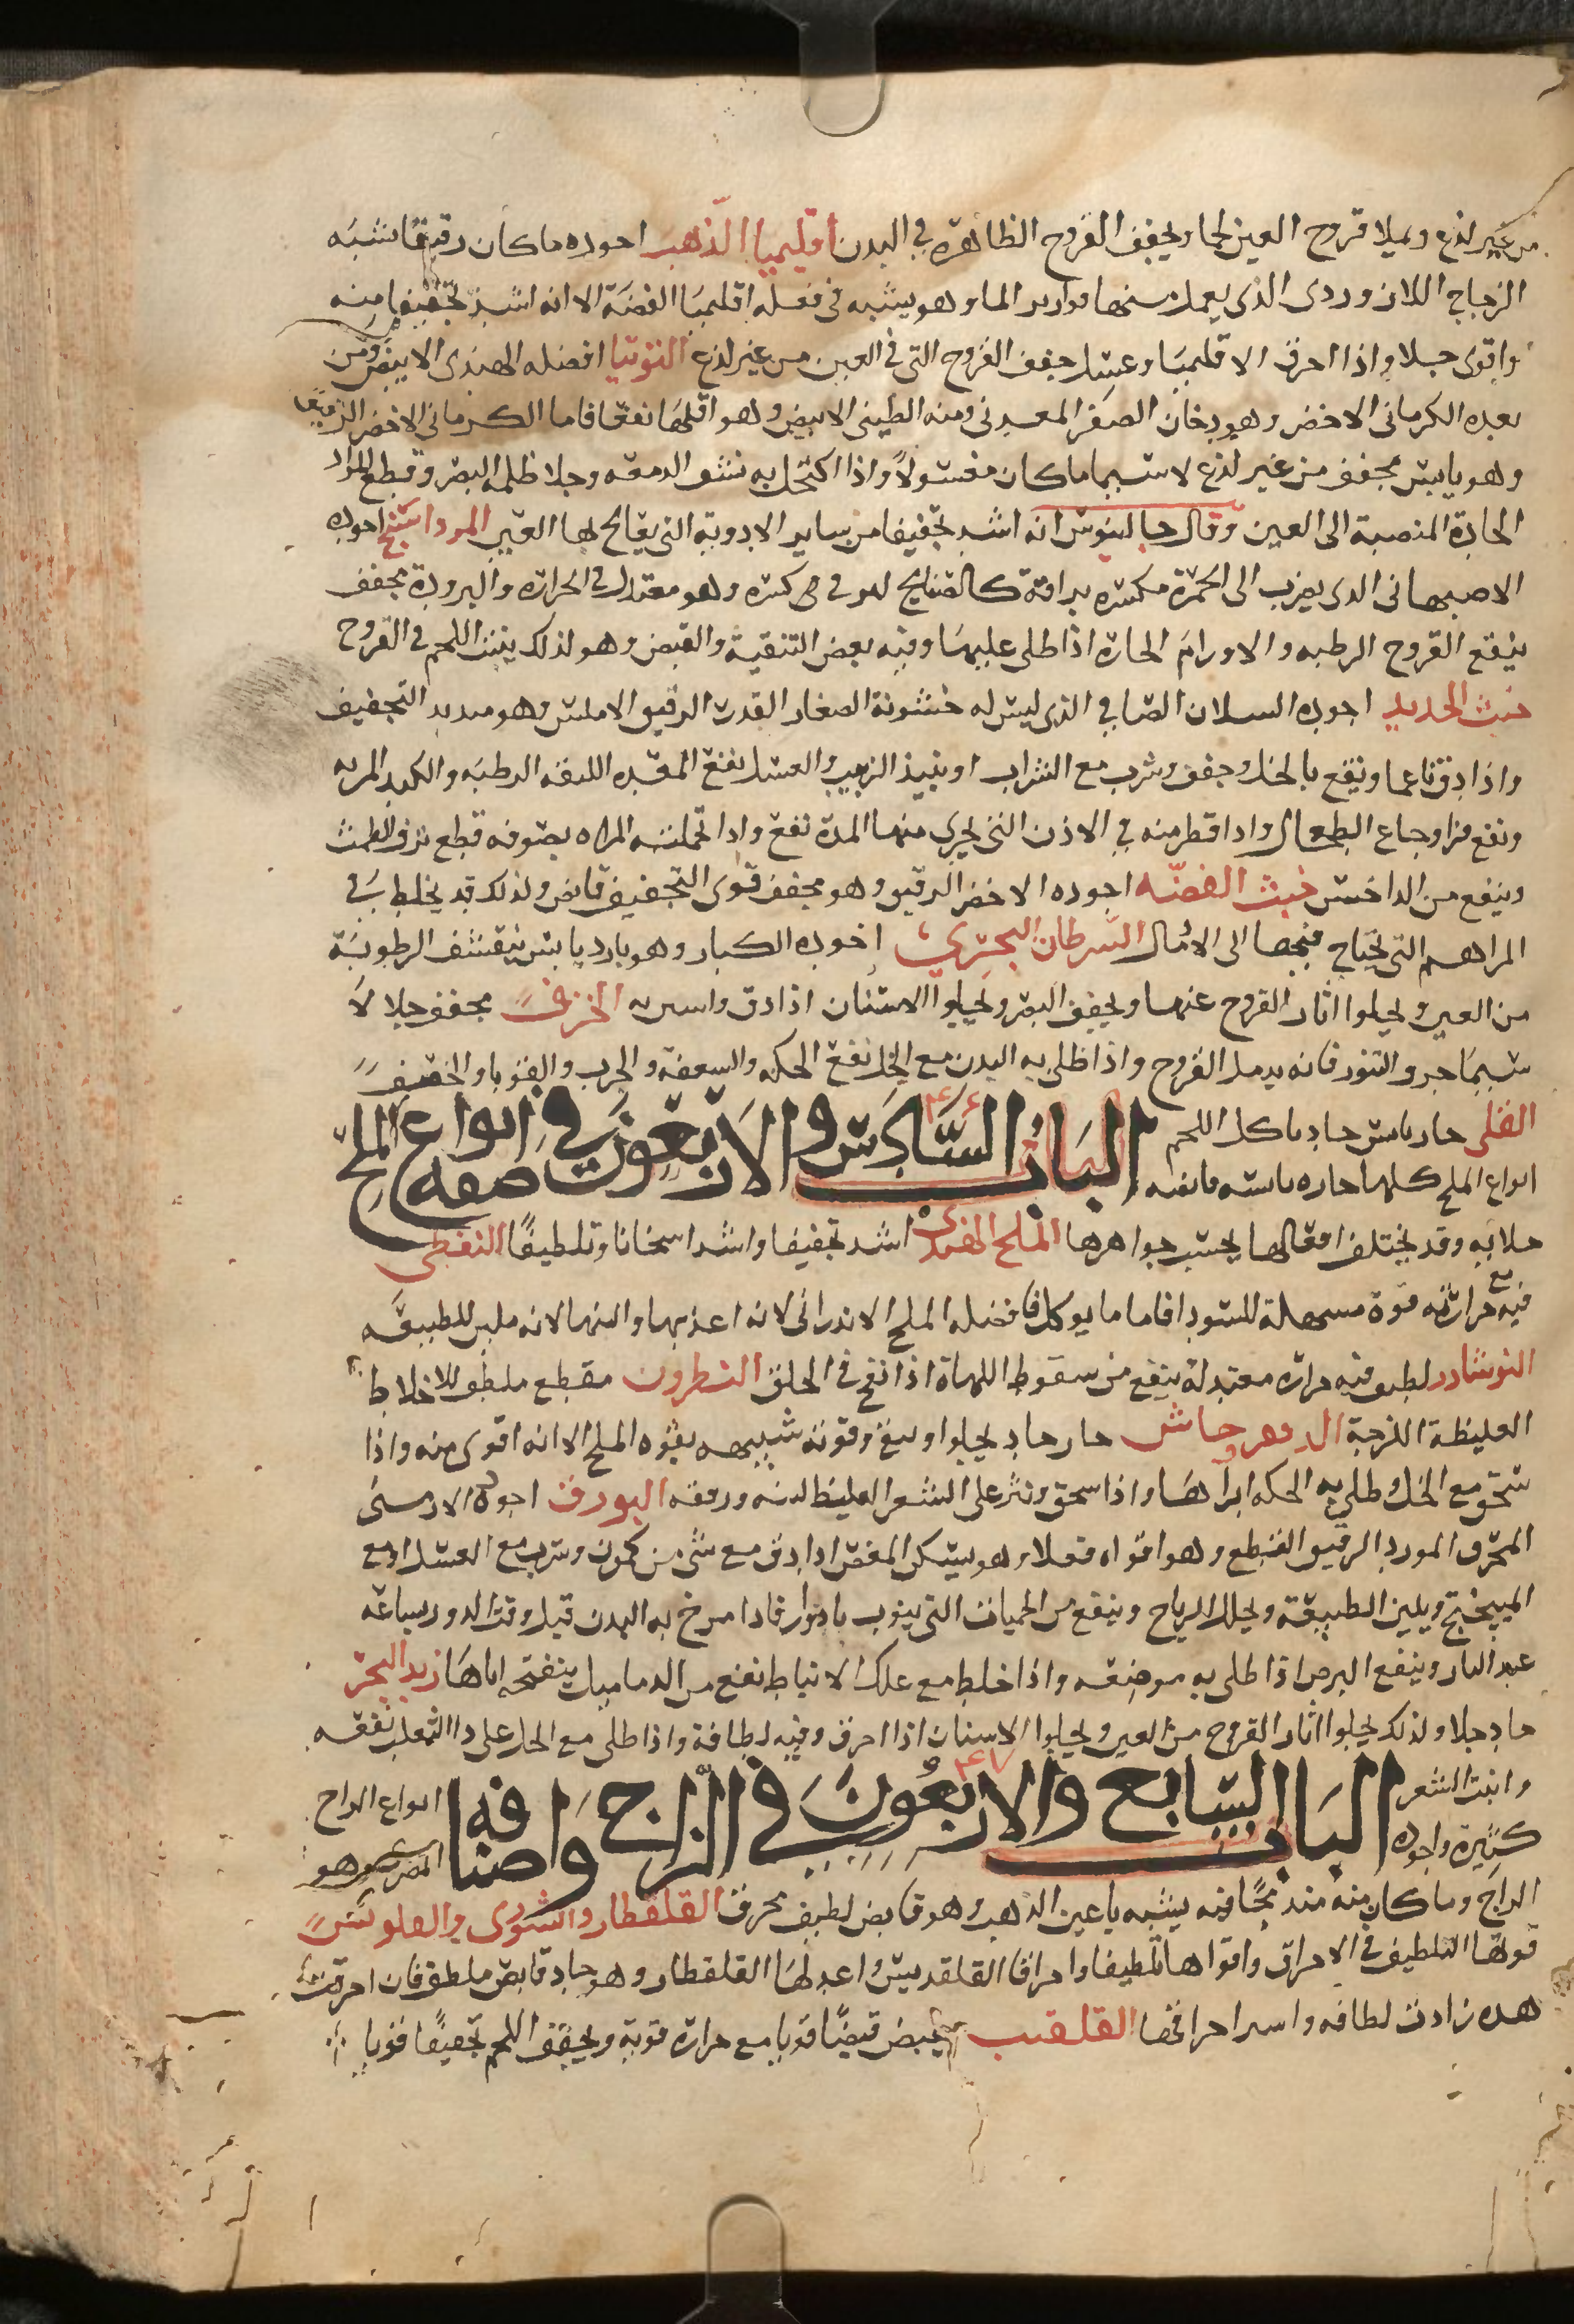 من غير لذع ويملا قروح العين لحما ويجفف القروح الظاهرة في البدن اقليميا الذهب اجوده ماكان رقيقا شبه
الزجاج اللازوردى الذى يعمل منها قوارير الماء وهو يشبه في فعله اقليميا الفضة الا انه اشد تجفيفا منه
واقوى جلا واذا احرق الاقليميا وغسل جفف القروح التى في العين من غير لذع التوتيا افضله الهندى الابيض ومن
بعده الكرمانى الاخضر وهو دخان الصفر المعدنى ومنه الطينى الابيض وهو اقلها نفعا فاما الكرمانى الاخضر الرقيق
وهو يابس مجفف من غير لذع لا سيما ماكان مغسولاً واذا اكتحل به نشف الدمعه وجلا ظلمه البصر وقطع المواد
الحادة المنصبة الى العين وقال جالينوس انه اشد تجفيفا من ساير الادوية التى يعالج بها العين المرداسنج اجوده
الاصبهانى الذى يضرب الى الحمرة مكسره براقة كالصفايح وهو معتدل في الحراره والبرودة مجفف
ينفع القروح الرطبه والاورام الحارة اذا طلى عليها وفيه بعض التنقية والقبض وهو لذلك ينبت اللحم في القروح
خبث الحديد اجوده الصافي الذى ليس له خشونة الصغار القدر الرقيق الاملس وهو شديد التجفيف
واذا دق ناعما ونقع بالخل وجفف وشرب مع الشراب او نبيذ الزبيب والعسل نفع المعده الرطبه والكبد
ونفع من اوجاع الطحال واذا قطر منه في الاذن التى يجرى منها المدة نفع واذا تحملته المراه بصوفه قطع نزف الطمث
وينفع من الداخس خبث الفضّه اجوده الاخضر الرقيق وهو مجفف قوى التجفيف قابض ولذلك قد يخلط في
المراهم التى يحتاج فيها الى الادمال السّرطان البحرى اجوده الكبار وهو بارد يابس ينشف الرطوبة
من العين ويجلوا اثار القروح عنها ويجفف البصر ويجلوا الاسنان اذا دق واستن به الخزف مجفف جلا لا
سيما خزف التنور فانه يدمل القروح واذا طلى به البدن مع الخل نفع الحكه والسعفه والجرب والقوبا والخصف
القلى حار يابس حاد ياكل اللحم
الباب السّادس والاربعون في انواع الملح صفه
انواع الملح كلها حاره يابسه قابضه
جلابه وقد يختلف افعالها بحسب جواهرها الملح الهندى اشد تجفيفا واشد اسخانا وتلطيفا النفطى
فيه مع حرارته قوة مسهلة للسودا فاما ما يوكل فافضله الملح الاندرانى لانه اعذبها والذها لانه ملين للطبيعه
النوشادر لطيف فيه حرارة معتدلة ينفع من سقوط اللهاة اذا نفخ في الحلق النطرون مقطع ملطف للاخلاط
الغليظة اللزجة حار حاد يجلوا وينقى وقوته شبيهه بقوه الملح الا انه اقوى منه واذا
سحق مع الخل وطلى به الحكه ابراها واذا سحق ونثر على الشعر الغليظ لينه ورققه البورق اجوده الارمنى
المحرق المورد الرقيق القطع وهو اقواه فعلا وهو يسكن المغص اذا دق مع شى من كمون وشرب مع العسل او مع
الميبختج ويلين الطبيعة ويحلل الرياح وينفع من الحميات التى ينوب بادوار فاذا مرخ به البدن قبل وقت الدور بساعه
عند النار وينفع البرص اذا طلى به موضعه واذا خلط مع علك الانباط نفع من الدماميل بتفتحه اياها زبد البحر
حاد جلا ولذلك يجلوا اثار القروح من العين ويجلوا الاسنان اذا احرق وفيه لطافة واذا طلى مع الخل على دا الثعلب نفعه
وانبت الشعر
الباب السّابع والاربعون في الزاج واصنافه
انواع الزاج
كثيرة واجوده
المصرى وهو
الزاج وما كان منه مند فيه يشبه باعين الذهب وهو قابض لطيف محرق القلقطار والسّورى
قوتها التلطيف في الاحراق واقواها تلطيفا واحراقا القلقديس واعدلها القلقطار وهو حاد قابض ملطف فان احرقت
هذه زادت لطافه واحراقها القلقنت يقبض قبضا قويا مع حرارة قوية ويجفف اللحم تجفيفا قويا